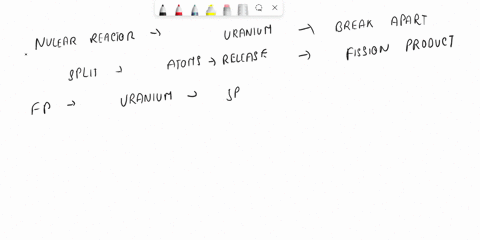 NULEAR REACTOR → URANIUM → BREAK APART
SPLIT → ATOMS → RELEASE → FISSION PRODUCT
FP → URANIUM → SP